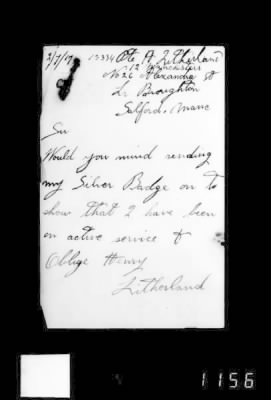 2/7/17 13334 Pte H Litherland
12 Manchesters
No 26 Alexandra St
L. Broughton
Salford. Manc
Sir
Would you mind sending
my Silver Badge on to
show that I have been
on active service &
Oblige Henry
Litherland
1156